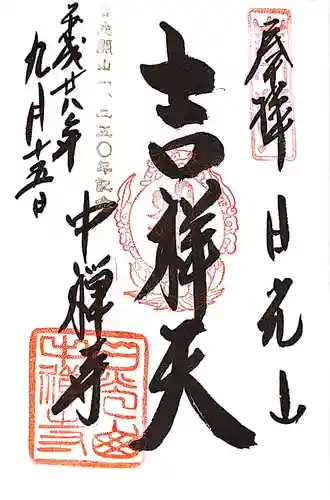 奉拝
日光山
吉祥天
日光開山一、二五〇年記念
中禅寺
平成廿八年
九月十五日